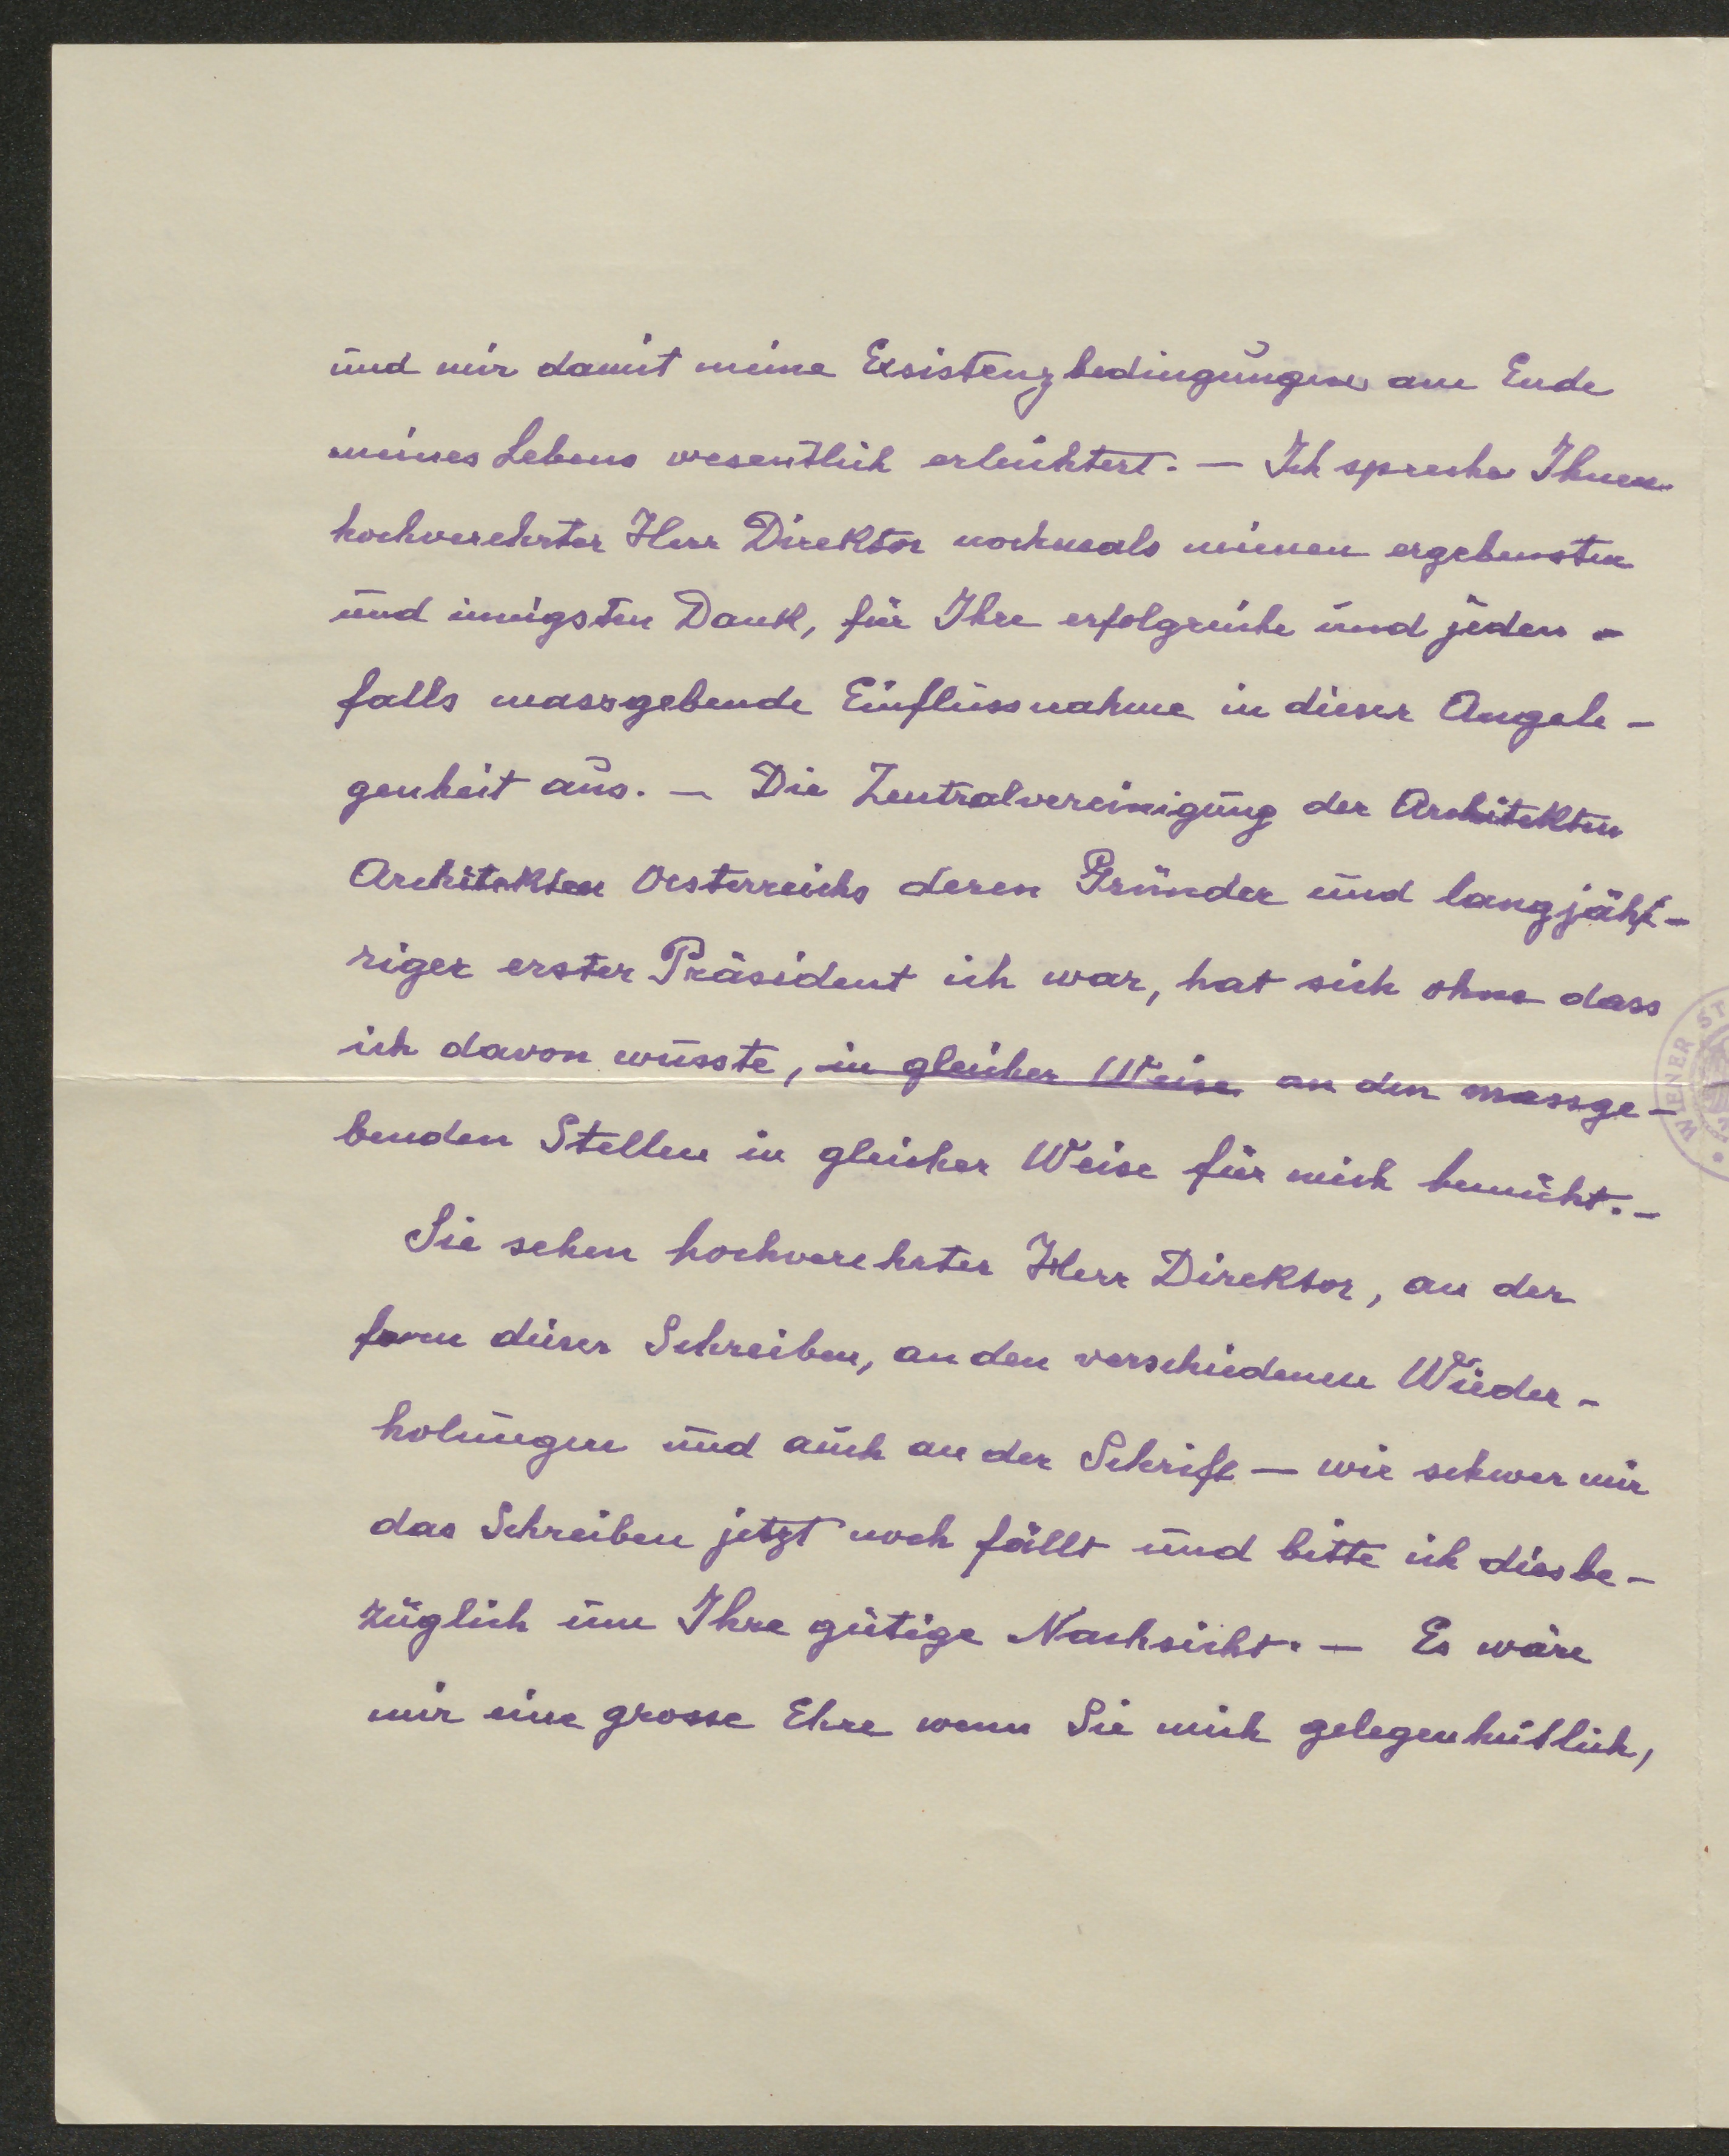 und mir damit meine Exsistenzbedingungen am Ende
meines Lebens wesentlich erleichtert. — Ich spreche Ihnen
hochverehrter Herr Direktor nochmals meinen ergebensten
und innigsten Dank, für Ihre erfolgreiche und jeden -
falls massgebende Einflussnahme in dieser Angele -
genheit aus. — Die Zentralvereinigung der Architekten
Architekten Oesterreichs deren Gründer und langjäh -
riger erster Präsident ich war, hat sich ohne dass
ich davon wusste, in gleicher Weise an den massge -
benden Stellen in gleicher Weise für mich bemüht. -
Sie sehen hochverehrter Herr Direktor, an der
form dieser Schreiben, an den verschiedenen Wieder -
holungen und auch an der Schrift — wie schwer mir
das Schreiben jetzt noch fällt und bitte ich diesbe -
züglich um Ihre gütige Nachsicht. — Es wäre
mir eine grosse Ehre wenn Sie mich gelegenheitlich,
WIENER ST